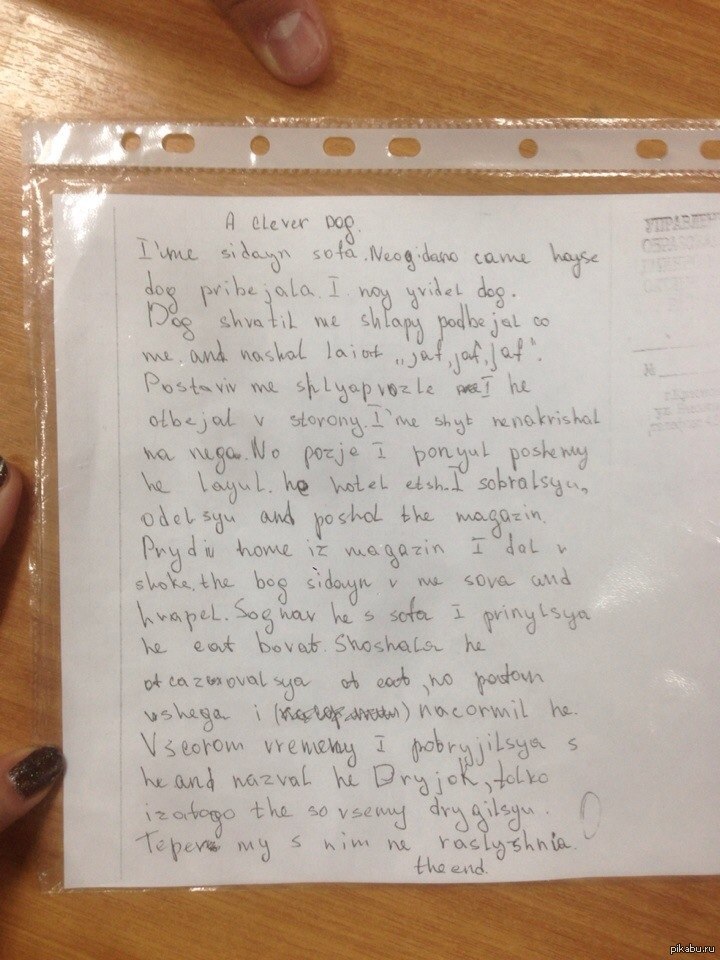 A clever Dog.
I'me sidayn sofa. Neogidano came hoyse
dog pribejala. I noy yvidel dog.
Dog shvatil me shlapy podbejal co
me. and nashal laiat „jaf, jaf, jaf".
Postaviv me shlyapvozle I he
otbejal v storony. I'me shyt nenakrishal
na nega. No pozje I ponyul poshemy
he layul. he hotel etsh. I sobralsyu,
odelsyu and poshol the magazin.
Prydiv home iz magazin I bal v
shoke. the bog sidayn v me sova and
hrapel. Sognav he s sofa I prinylsya
he eat bovat. Shoshala he
otcazovalsya ot eat, no potom
vshega i nacormil he.
Vscorom vremeny I pobryjilsya s
he and nazval he Dryjok, tolko
izatogo the sovsemy drygilsyu.
Teper my s nim ne raslyshnia.
the end.
УПРАВЛЕН
ОБРАЗОВА
№
pikabu.ru